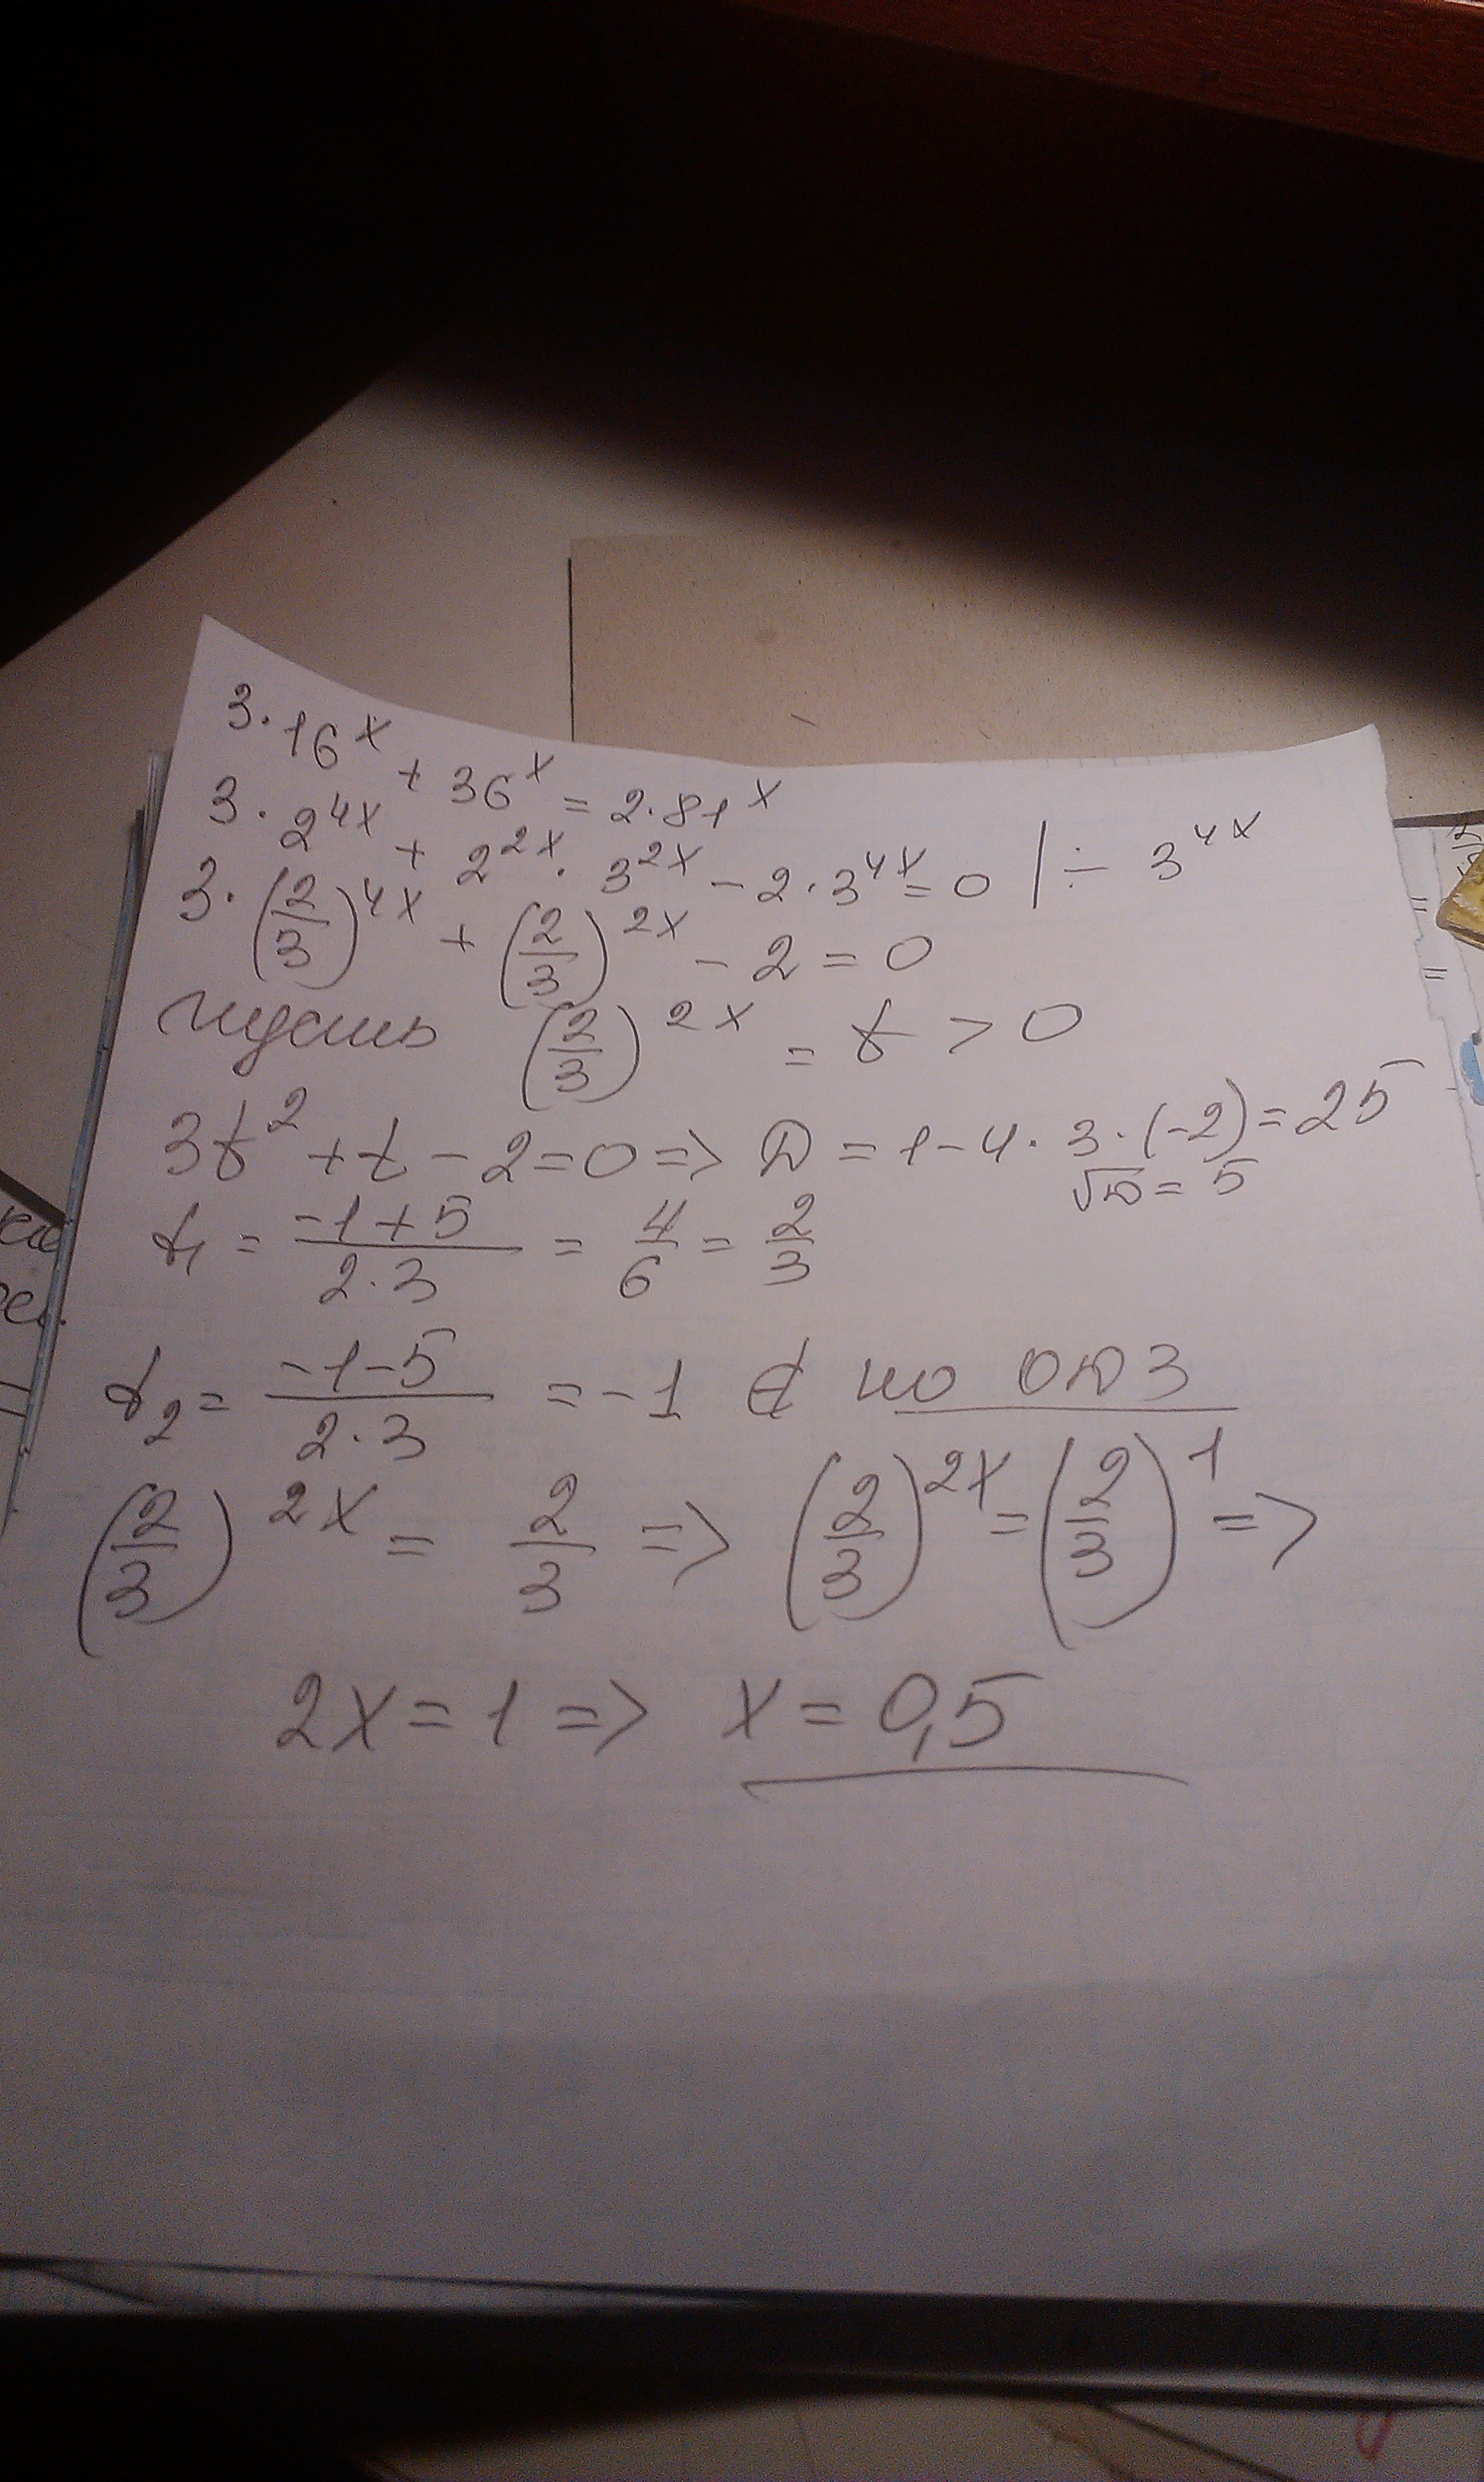 3·16^x + 36^x = 2·81^x
3·2^{4x} + 2^{2x}·3^{2x} - 2·3^{4x} = 0 | ÷ 3^{4x}
3·(2/3)^{4x} + (2/3)^{2x} - 2 = 0
пусть (2/3)^{2x} = t > 0
3t² + t - 2 = 0 => D = 1 - 4·3·(-2) = 25
√D = 5
t₁ = (-1+5)/(2·3) = 4/6 = 2/3
t₂ = (-1-5)/(2·3) = -1 ∉ по ОДЗ
(2/3)^{2x} = 2/3 => (2/3)^{2x} = (2/3)^1 =>
2x = 1 => x = 0,5